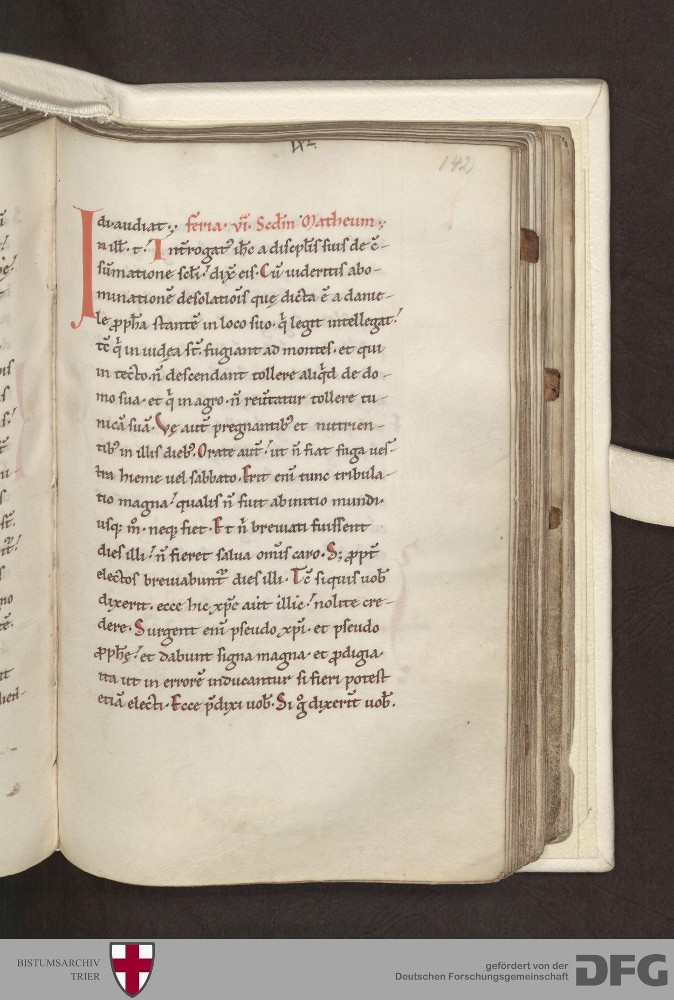 142
di audiat. feria. vi. Scd̄m Matheum.
In ill̄. t. Int̄rogat᷒ ih̄c a discipl̄is suis de c̄-
sūmatione sc̄li. dix̄ eis. Cū uideritis abo-
minationē desolatiōis quę dicta ē a danie-
le ꝓph̄a stantē in loco suo. q̄ legit intellegat.
tc̄ q̄ in iudęa st̄. fugiant ad montes. et qui
in tecto. n̄ descendant tollere aliq̄d de do-
mo sua. et q̄ in agro. n̄ reūtatur tollere tu-
nicā suā. Vę aut̄ pregnantib᷒ et nutrien-
tib᷒ in illis dieb᷒. Orate aut̄. ut n̄ fiat fuga ues-
tra hieme uel sabbato. Erit eni̅ tunc tribula-
tio magna. qualis n̄ fuit ab initio mundi.
usq; m̊. neq; fiet. Et n̄ breuiati fuissent
dies illi. n̄ fieret salua om̄is caro. S; ꝓpt̄
electos breuiabunt᷒ dies illi. Tc̄ si quis uob̄
dixerit. ecce hic xp̄c aut illic. nolite cre-
dere. Surgent eni̅ pseudo xp̄i. et pseudo
ꝓph̄ę. et dabunt signa magna. et ꝓdigia
ita ut in errorē inducantur si fieri potest
etiā electi. Ecce p̄dixi uob̄. Si g̊ dixeri̅t uob̄.
BISTUMSARCHIV
TRIER
gefördert von der
Deutschen Forschungsgemeinschaft
DFG